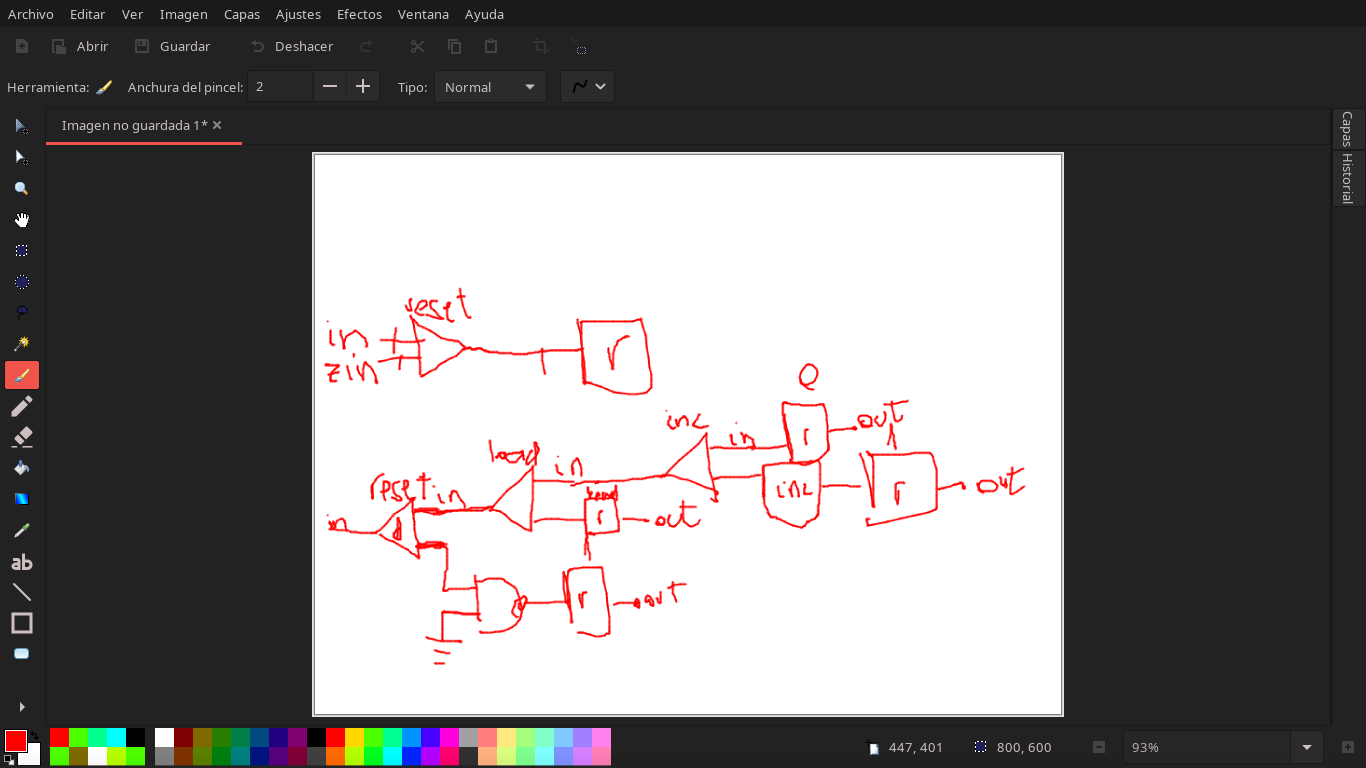 Archivo Editar Ver Imagen Capas Ajustes Efectos Ventana Ayuda
Abrir Guardar Deshacer
Herramienta: Anchura del pincel: 2 Tipo: Normal
Imagen no guardada 1*
Capas
Historial
reset
in
zin
r
inc
in
r
out
load
in
inc
r
out
reset
in
in
load
r
out
r
out
ab
447, 401
800, 600
93%